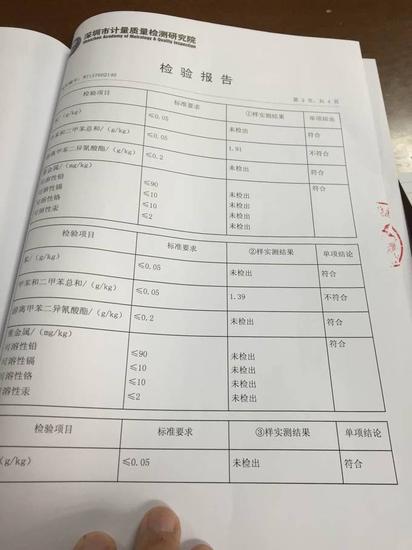 深圳市计量质量检测研究院
Shenzhen Academy of Metrology & Quality Inspection
检验报告
第 3 页, 共 4 页
检验项目 标准要求 ①样实测结果 单项结论
/(g/kg) ≤0.05 未检出 符合
苯和二甲苯总和/(g/kg) ≤0.05 1.91 不符合
游离甲苯二异氰酸酯/(g/kg) ≤0.2 未检出 符合
重金属/(mg/kg) 符合
可溶性铅 ≤90 未检出
可溶性镉 ≤10 未检出
可溶性铬 ≤10 未检出
可溶性汞 ≤2 未检出
检验项目 标准要求 ②样实测结果 单项结论
苯/(g/kg) ≤0.05 未检出 符合
甲苯和二甲苯总和/(g/kg) ≤0.05 1.39 不符合
游离甲苯二异氰酸酯/(g/kg) ≤0.2 未检出 符合
重金属/(mg/kg) 符合
可溶性铅 ≤90 未检出
可溶性镉 ≤10 未检出
可溶性铬 ≤10 未检出
可溶性汞 ≤2 未检出
检验项目 标准要求 ③样实测结果 单项结论
(g/kg) ≤0.05 未检出 符合